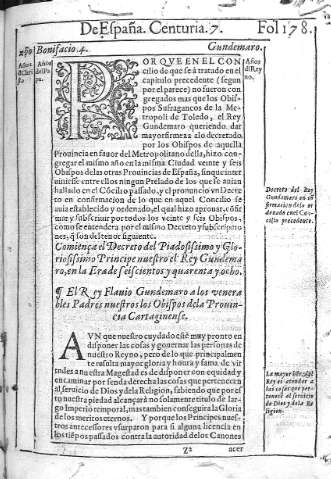 De España. Centuria. 7. Fol 178.
xpō Bonifacio. 4. Gundemaro.
Años
Años
del Pa-
pa.
Años
del Rey
no.
POR QVE EN EL CON
cilio de que se à tratado en el
capitulo precedente (segun
por el parece) no fueron con
gregados mas que los Obis-
pos Sufraganeos de la Me-
tropoli de Toledo, el Rey
Gundemaro queriendo dar
mayor firmeza a lo decretado
por los Obispos de aquella
Prouincia en fauor del Metropolitano della, hizo con-
gregar el mismo año en la misma Ciudad veynte y seis
Obispos de las otras Prouincias de España, sin que inter
uiniesse entre ellos ningun Prelado de los que se auian
hallado en el Cōcilio passado, y el pronunciò vn Decre
to en confirmacion de lo que en aquel Concilio se
auia establecido y ordenado, el qual hizo aprouar, cōfir
mar y subscriuir por todos los veynte y seis Obispos,
como se entendera por el mismo Decreto y subscripcio-
nes, q̄ son del tenor siguiente.
Decreto del Rey
Gundemaro en cō
firmacion de lo or
denado en el Cōci
lio precedente.
Comiença el Decreto del Piadosissimo y Glo-
riosissimo Principe nuestro el Rey Gundema
ro, en la Era de seiscientos y quarenta y ocho.
¶ El Rey Flauio Gundemaro a los venera
bles Padres nuestros los Obispos de la Prouin
cia Cartaginense.
AVN que nuestro cuydado esté muy pronto en
disponer las cosas y gouernar las personas de
nuestro Reyno, pero de lo que principalmen
te resulta mayor gloria y honra y fama de vir
tudes a nuestra Magestad es de disponer con equidad y
encaminar por senda derecha las cosas que pertenecen
al seruicio de Dios y de la Religion, sabiendo que por es
to nuestra piedad alcançarà no solamente titulo de lar-
go Imperio temporal, mas tambien conseguirà la Gloria
de los meritos eternos. Y porque los Principes nues-
tros antecessores vsurparon para si alguna licencia en
los tiēpos passados contra la autoridad de los Canones
La mayor
Rey es atender a
las cosas que perte
necen al seruicio
de Dios y de la Re
ligion.
Z 2 acer